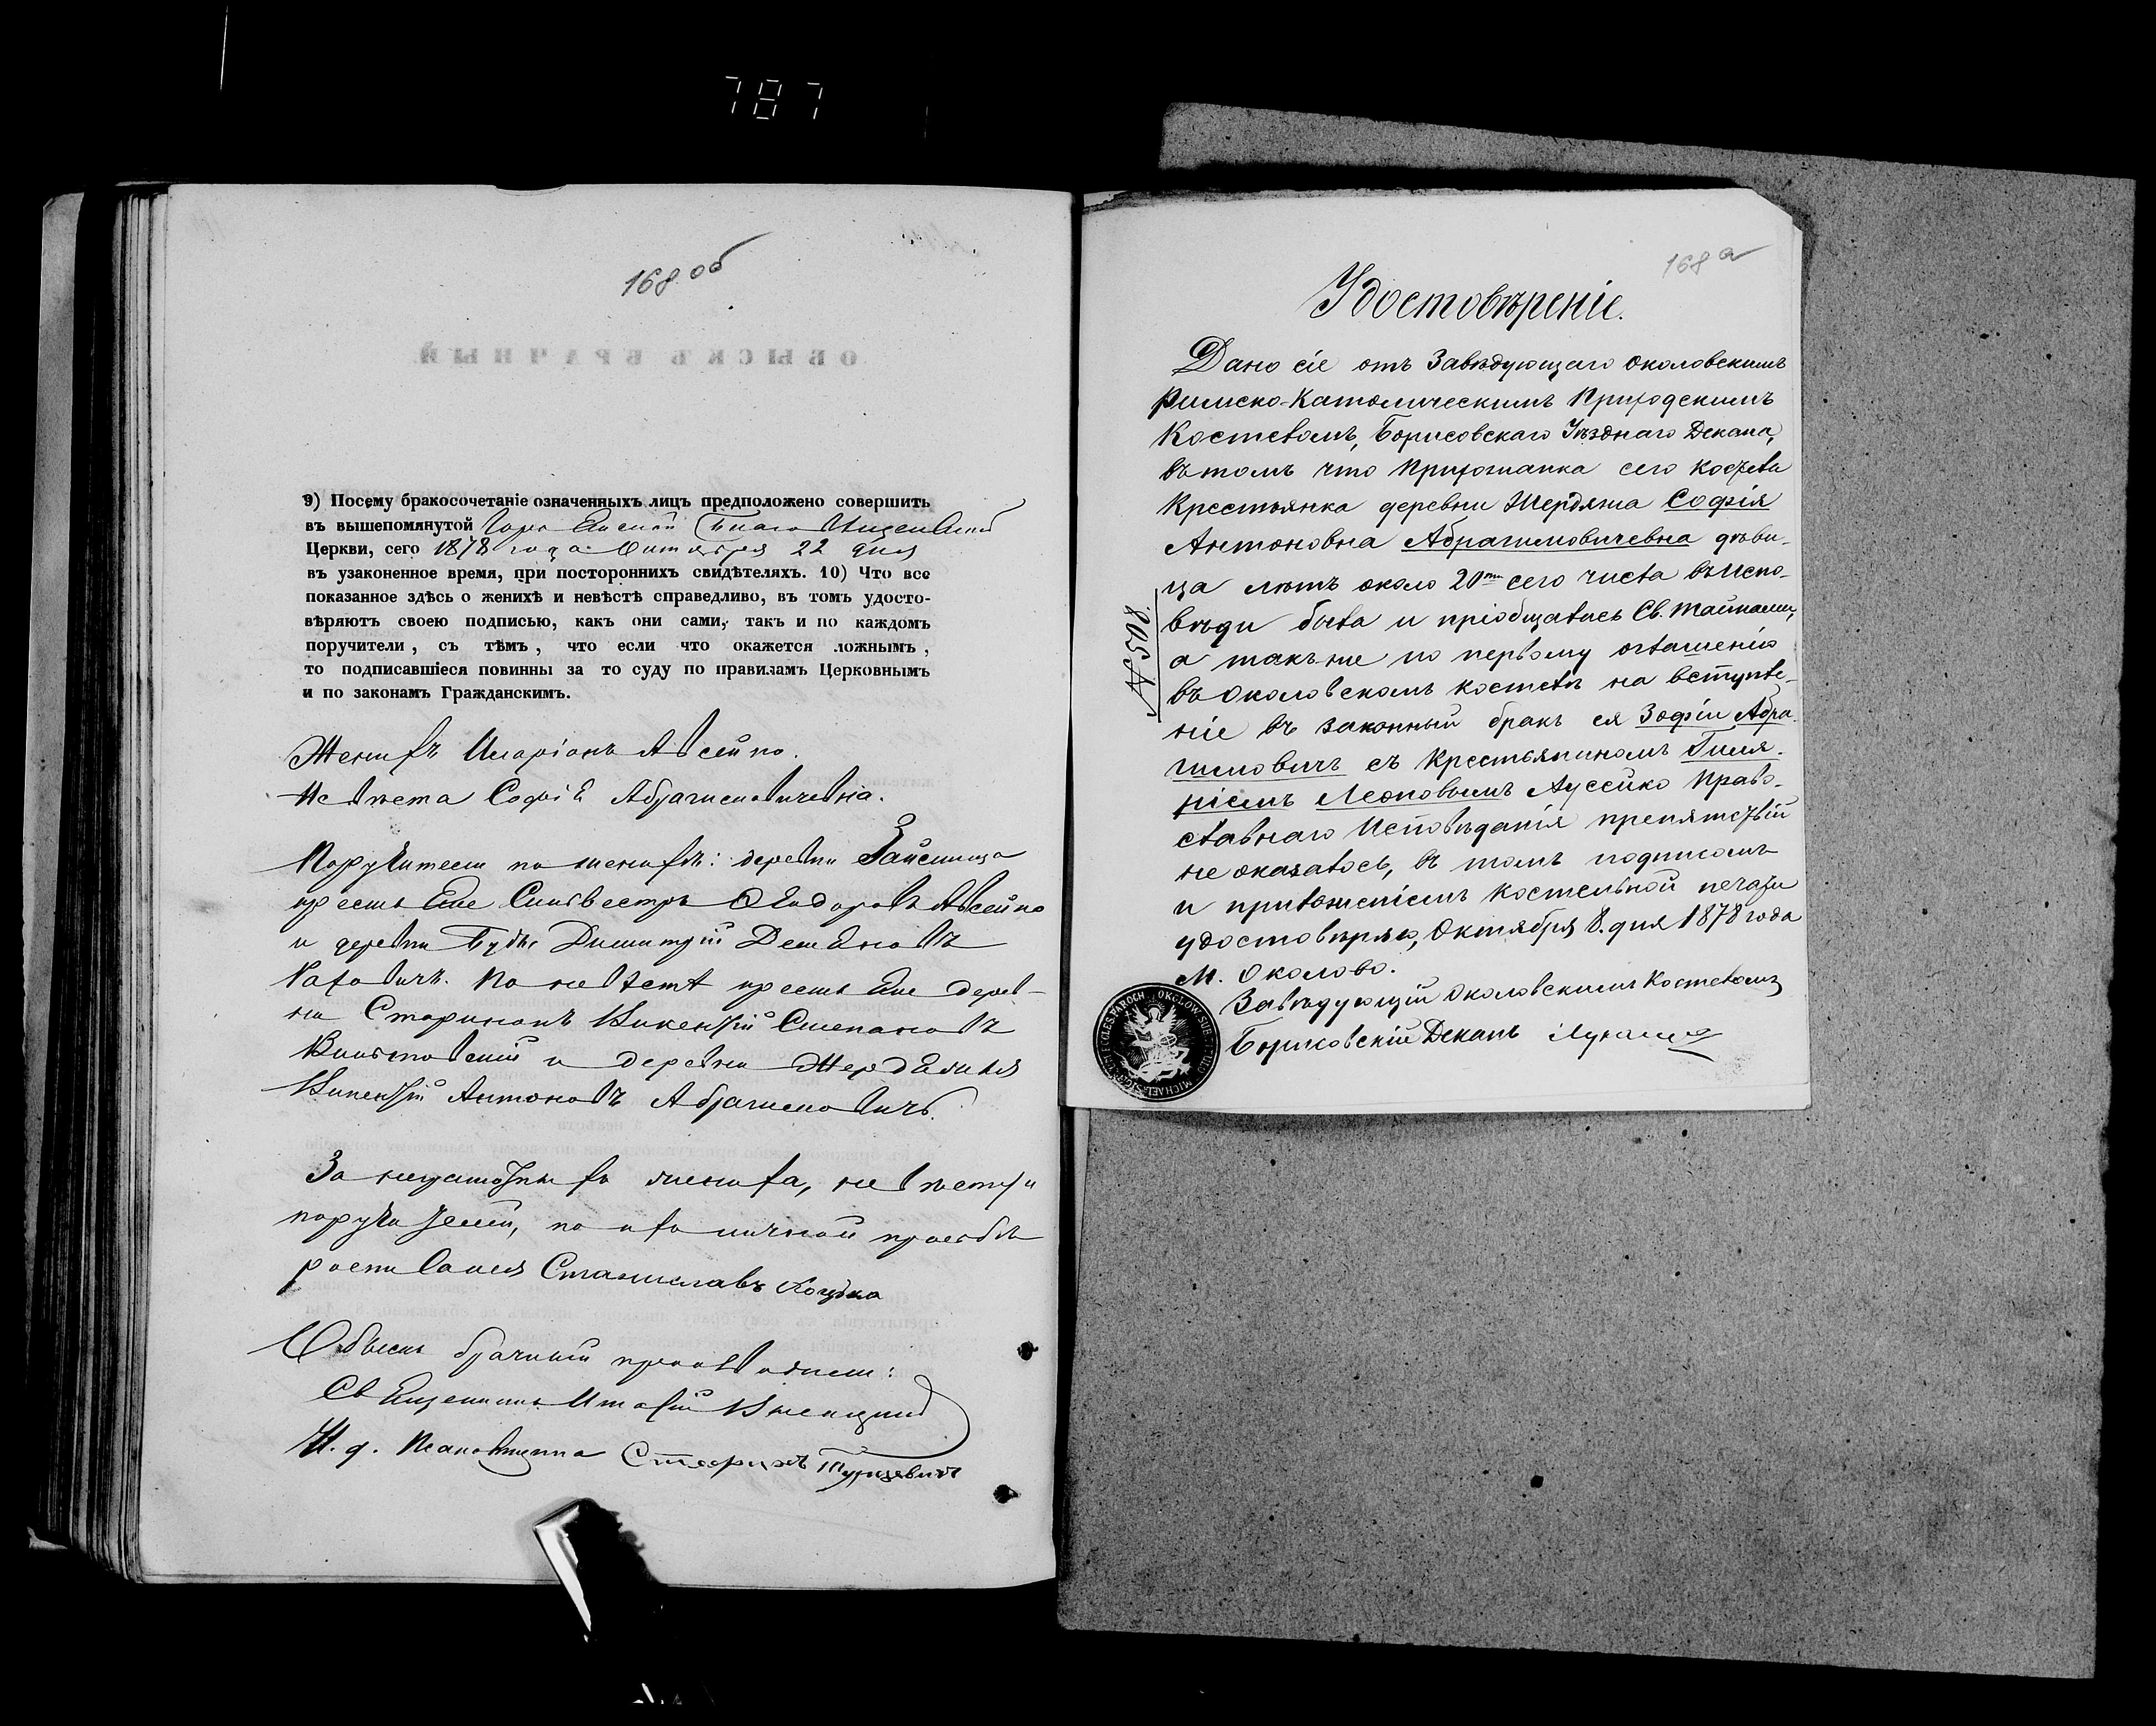 787
168 об
9) Посему бракосочетаніе означенныхъ лицъ предположено совершить
въ вышепомянутой
Церкви, сего 1878 года Октября 22 дня
въ узаконенное время, при постороннихъ свидѣтеляхъ. 10) Что все
показанное здѣсь о женихѣ и невѣстѣ справедливо, въ томъ удосто-
вѣряютъ своею подписью, какъ они сами, такъ и по каждомъ
поручители, съ тѣмъ, что если что окажется ложнымъ,
то подписавшіеся повинны за то суду по правиламъ Церковнымъ
и по законамъ Гражданскимъ.
Женихъ Иларіонъ Авсейко.
Невѣста Софія Абрагимовичевна.
Поручители по женихѣ: деревни
крестьяне Сильвестръ Ѳеодоровъ Авсейко
и деревни Буды Димитрій Демьяновъ
По невѣстѣ крестьяне дерев-
ни Старинокъ Викентій Степановъ
и деревни Жердяжья
Викентій Антоновъ Абрагимовичъ.
За неграмотныхъ жениха, невѣсту и
поручителей, по ихъ личной просьбѣ
росписался Станиславъ
Обыскъ брачный производили:
Священникъ
И. д. Псаломщика Стефанъ
168 а
Удостовѣреніе.
Дано сіе отъ Завѣдующаго Околовскимъ
Римско-Католическимъ Приходскимъ
Костеломъ, Борисовскаго Уѣзднаго Декана,
въ томъ что Прихожанка сего костела
Крестьянка деревни Жердяжа Софія
Антоновна Абрагимовичевна дѣви-
ца лѣтъ около 20ти сего числа въ Испо-
вѣди была и пріобщалась Св. Тайнами,
а такъ-же по первому оглашенію
въ Околовскомъ костелѣ на вступле-
ніе въ законный бракъ ея Зофіи Абра-
гимовичъ съ Крестьяниномъ Гиля-
ріемъ Леоновымъ Аусейко Право-
славнаго Исповѣданія препятствій
не оказалось, въ томъ подписомъ
и приложеніемъ костельной печати
удостовѣряю, Октября 8. дня 1878 года
М. Околово.
Завѣдующій Околовскимъ Костеломъ
Борисовскій Деканъ
№ 508.